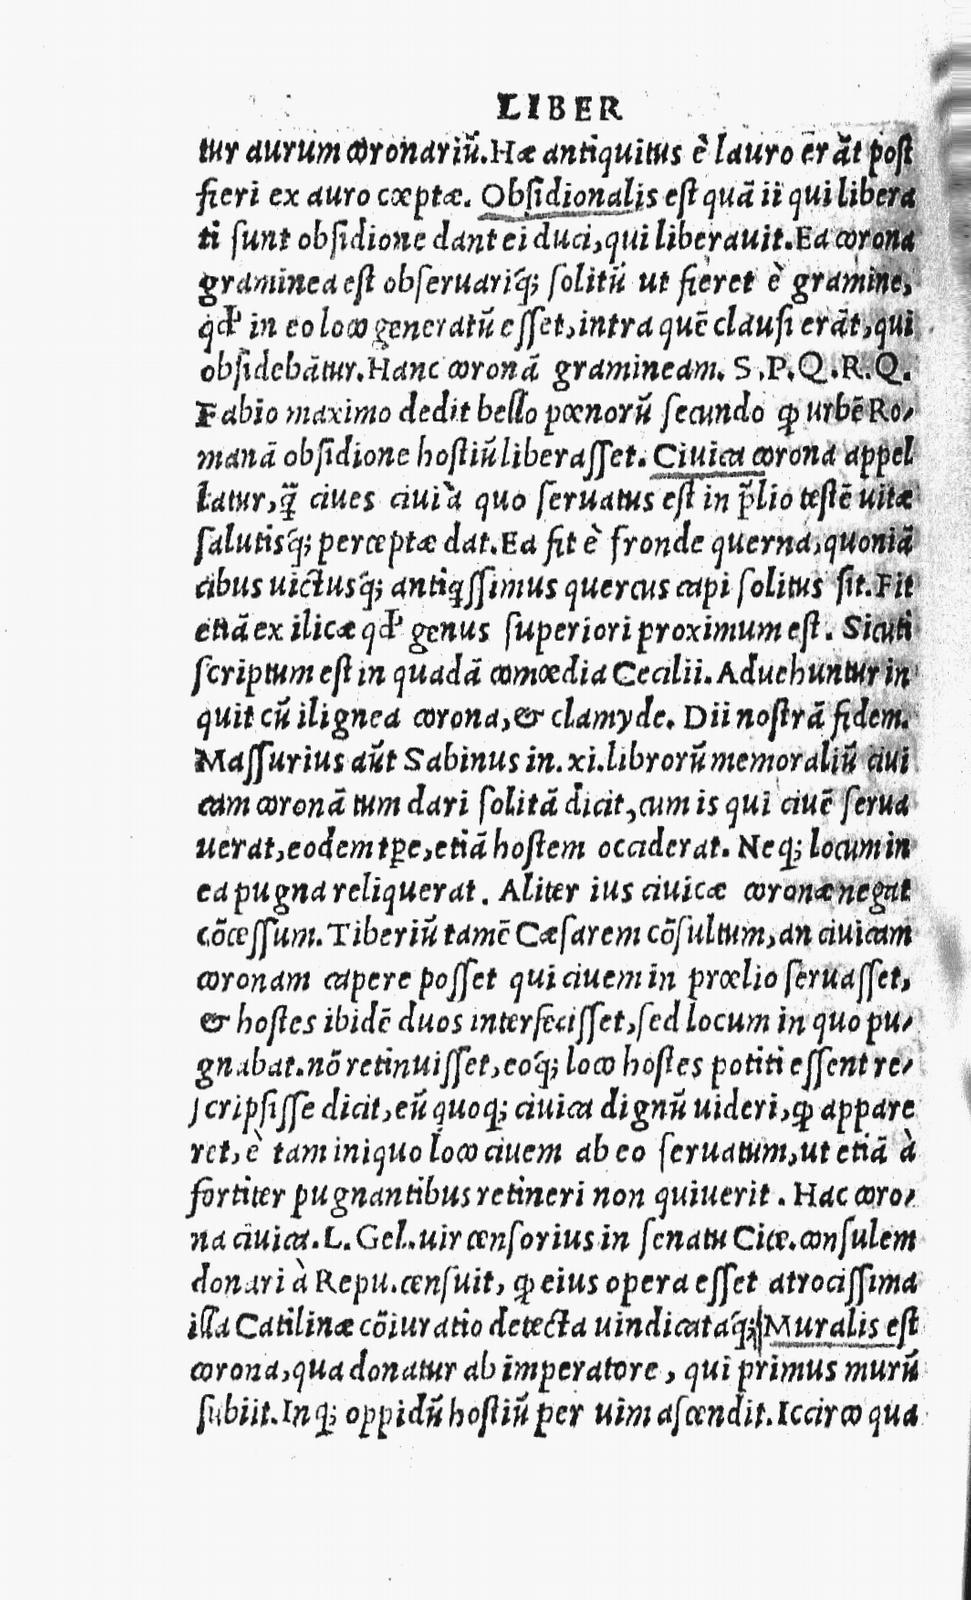 LIBER
tur aurum coronariũ. Hæ antiquitus è lauro erãt post
fieri ex auro cæptæ. Obsidionalis est quã ii qui libera
ti sunt obsidione dant ei duci, qui liberauit. Ea corona
graminea est obseruariq́; solitũ ut fieret è gramine,
qđ in eo loco generatũ esset, intra quẽ clausi erãt, qui
obsidebãtur. Hanc coronã gramineam. S.P.Q.R.Q.
Fabio maximo dedit bello pœnorũ secundo ꝙ urbẽ Ro/
manã obsidione hostiũ liberasset. Ciuica corona appel
latur, q̃ ciues ciui à quo seruatus est in p̃lio testẽ uitæ
salutisq́; perceptæ dat. Ea fit è fronde querna, quoniã
cibus uictusq́; antiqssimus quercus capi solitus sit. Fit
etiã ex ilicæ qđ genus superiori proximum est. Sicuti
scriptum est in quadã comœdia Cecilii. Aduehuntur in
quit cũ ilignea corona, & clamyde. Dii nostrã fidem.
Massurius aũt Sabinus in. xi. librorũ memoraliũ ciui
cam coronã tum dari solitã dicit, cum is qui ciuẽ serua
uerat, eodem tp̱e, etiã hostem occiderat. Neq; locum in
ea pugna reliquerat. Aliter ius ciuicæ coronæ negat
cõcessum. Tiberiũ tamẽ Cæsarem cõsultum, an ciuicam
coronam capere posset qui ciuem in prœlio seruasset,
& hostes ibidẽ duos interfecisset, sed locum in quo pu/
gnabat. nõ retinuisset, eoq́; loco hostes potiti essent re/
scripsisse dicit, eũ quoq; ciuica dignũ uideri, ꝙ appare
ret, è tam iniquo loco ciuem ab eo seruatum, ut etiã à
fortiter pugnantibus retineri non quiuerit. Hac coro/
na ciuica. L. Gel. uir censorius in senatu Cice. consulem
donari à Repu. censuit, ꝙ eius opera esset atrocissima
illa Catilinæ cõiuratio detecta uindicataq́; Muralis est
corona, qua donatur ab imperatore, qui primus murũ
subiit. Inq; oppidũ hostiũ per uim ascendit. Iccirco qua